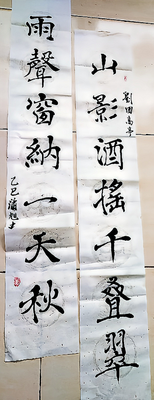 劉園高亭
山影酒搖千疊翠
雨聲窗納一天秋
乙巳